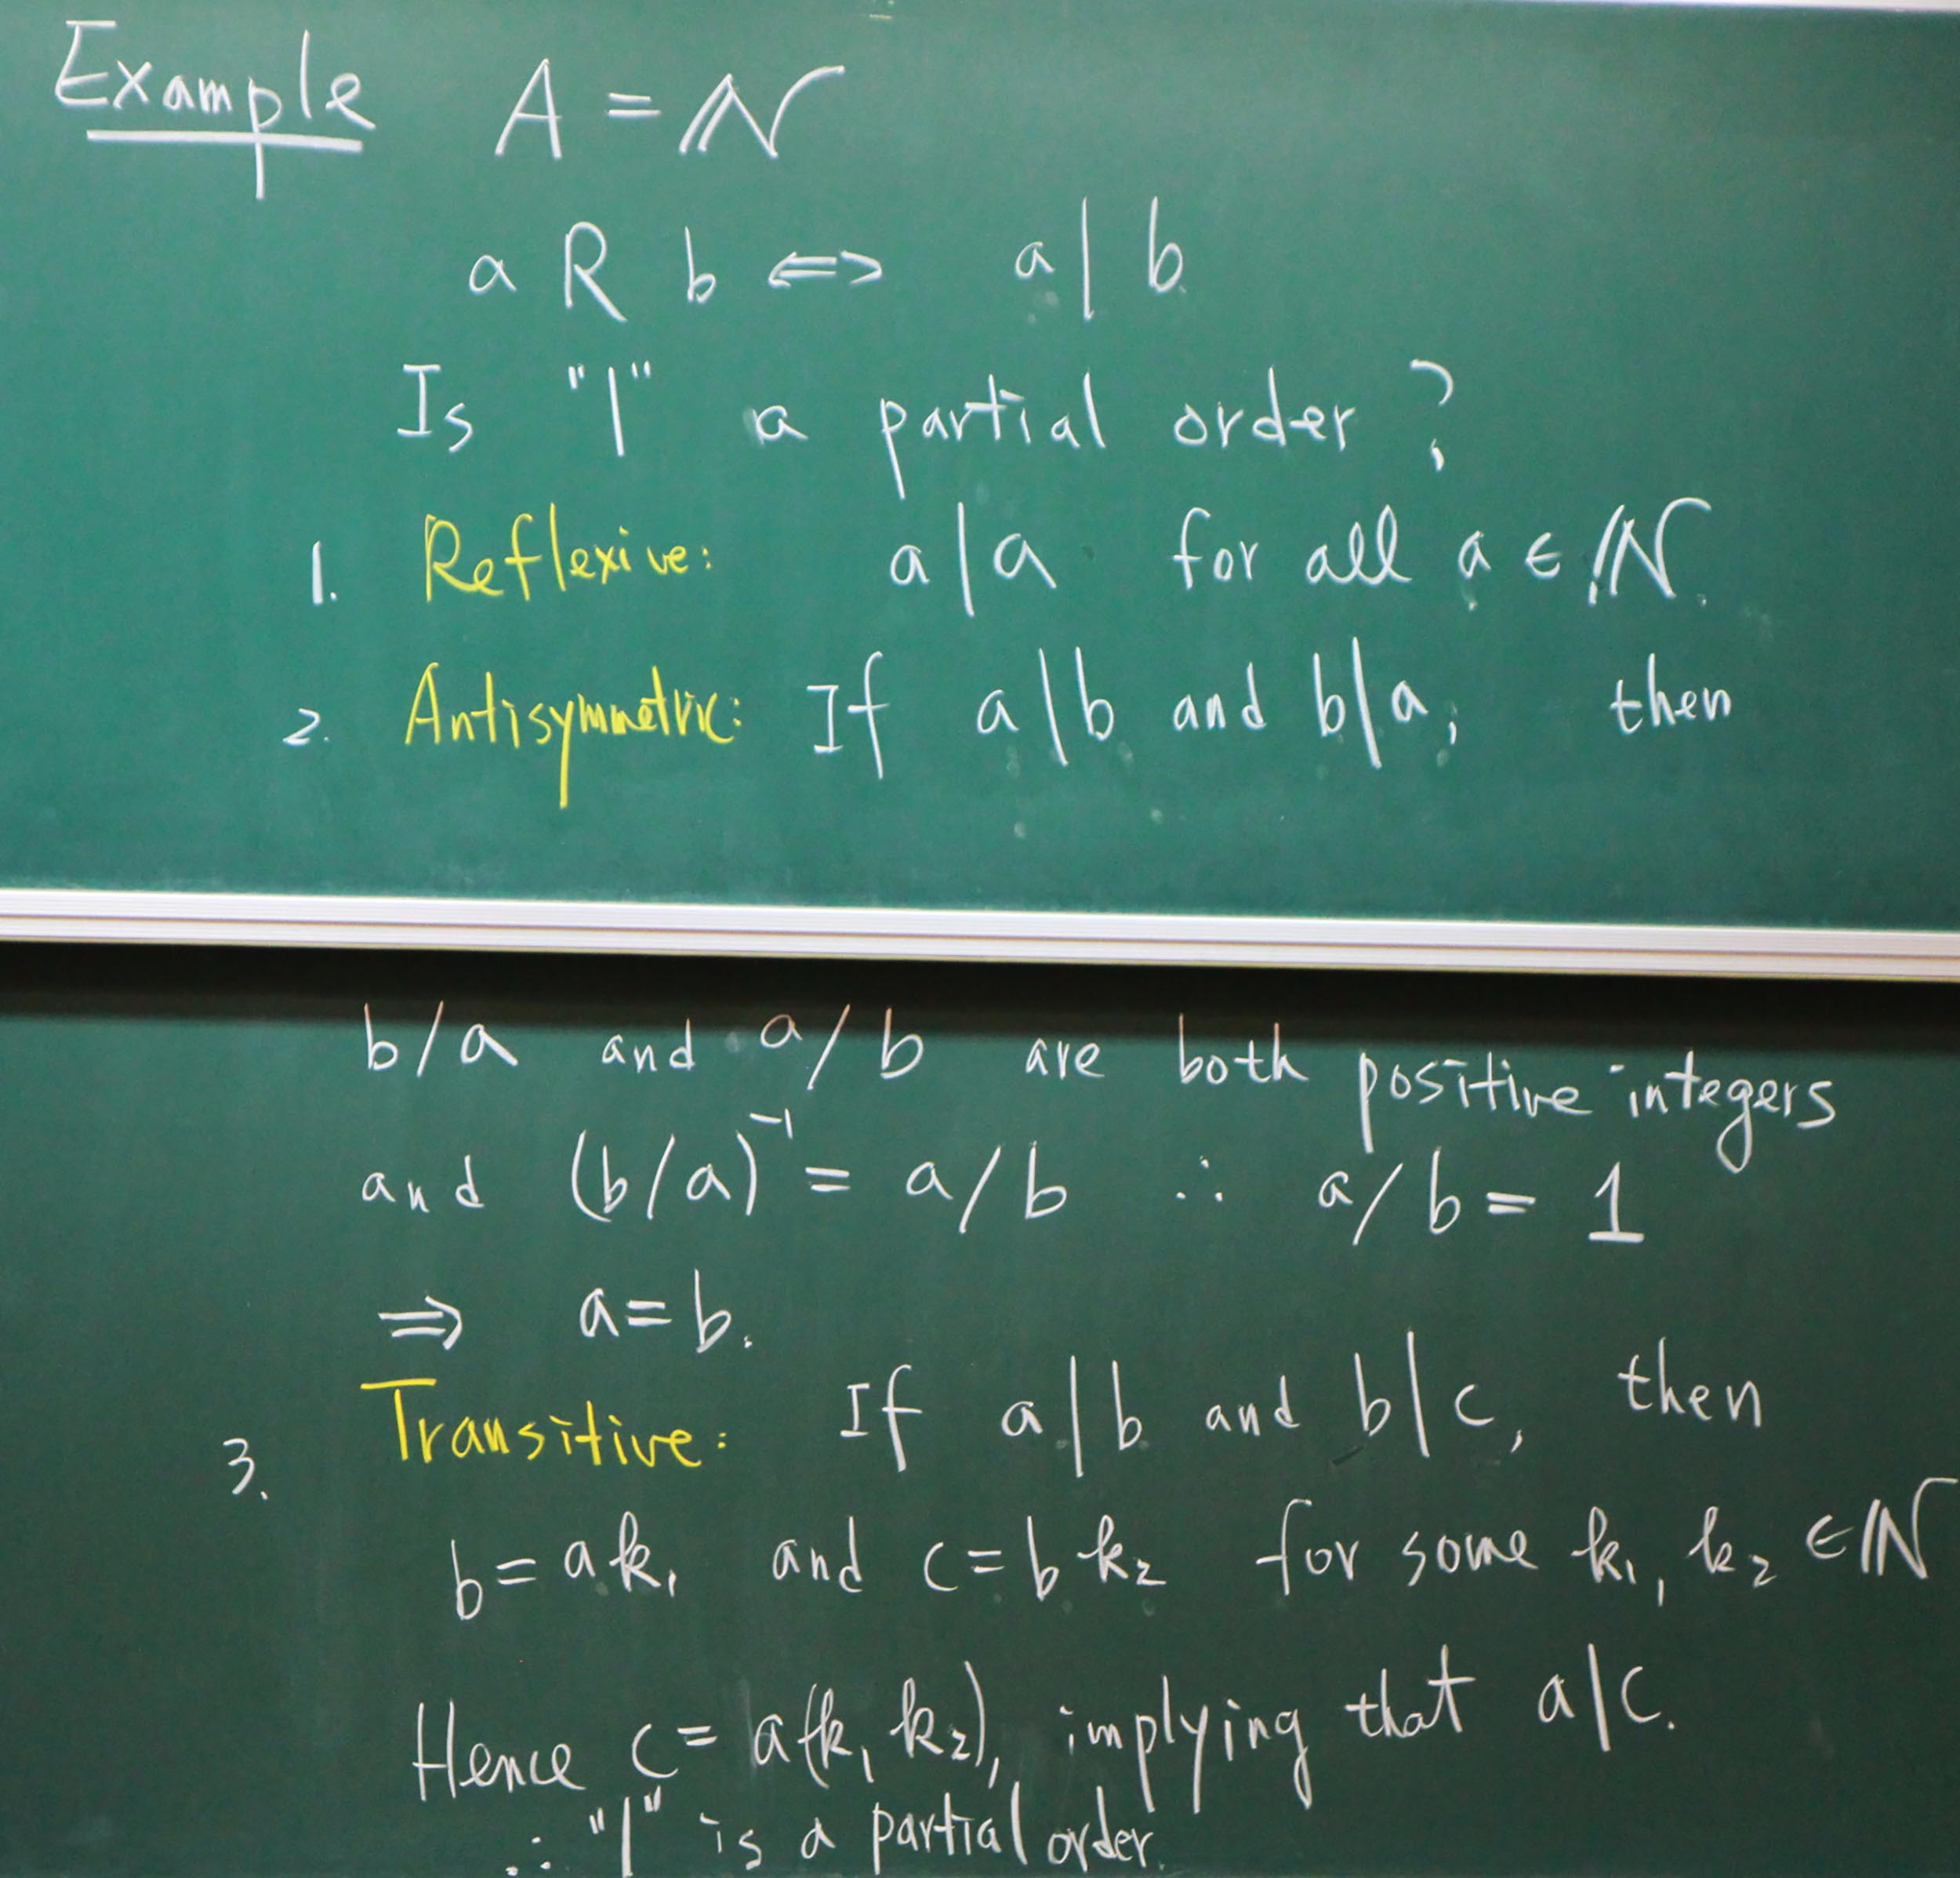 Example A = ℕ
a R b ⇔ a | b
Is "|" a partial order ?
1. Reflexive: a|a for all a ∈ ℕ.
2. Antisymmetric: If a|b and b|a, then
b/a and a/b are both positive integers
and (b/a)⁻¹ = a/b ∴ a/b = 1
⇒ a=b.
3. Transitive: If a|b and b|c, then
b = ak₁ and c = b k₂ for some k₁, k₂ ∈ ℕ
Hence c = a(k₁ k₂), implying that a|c.
∴ "|" is a partial order.